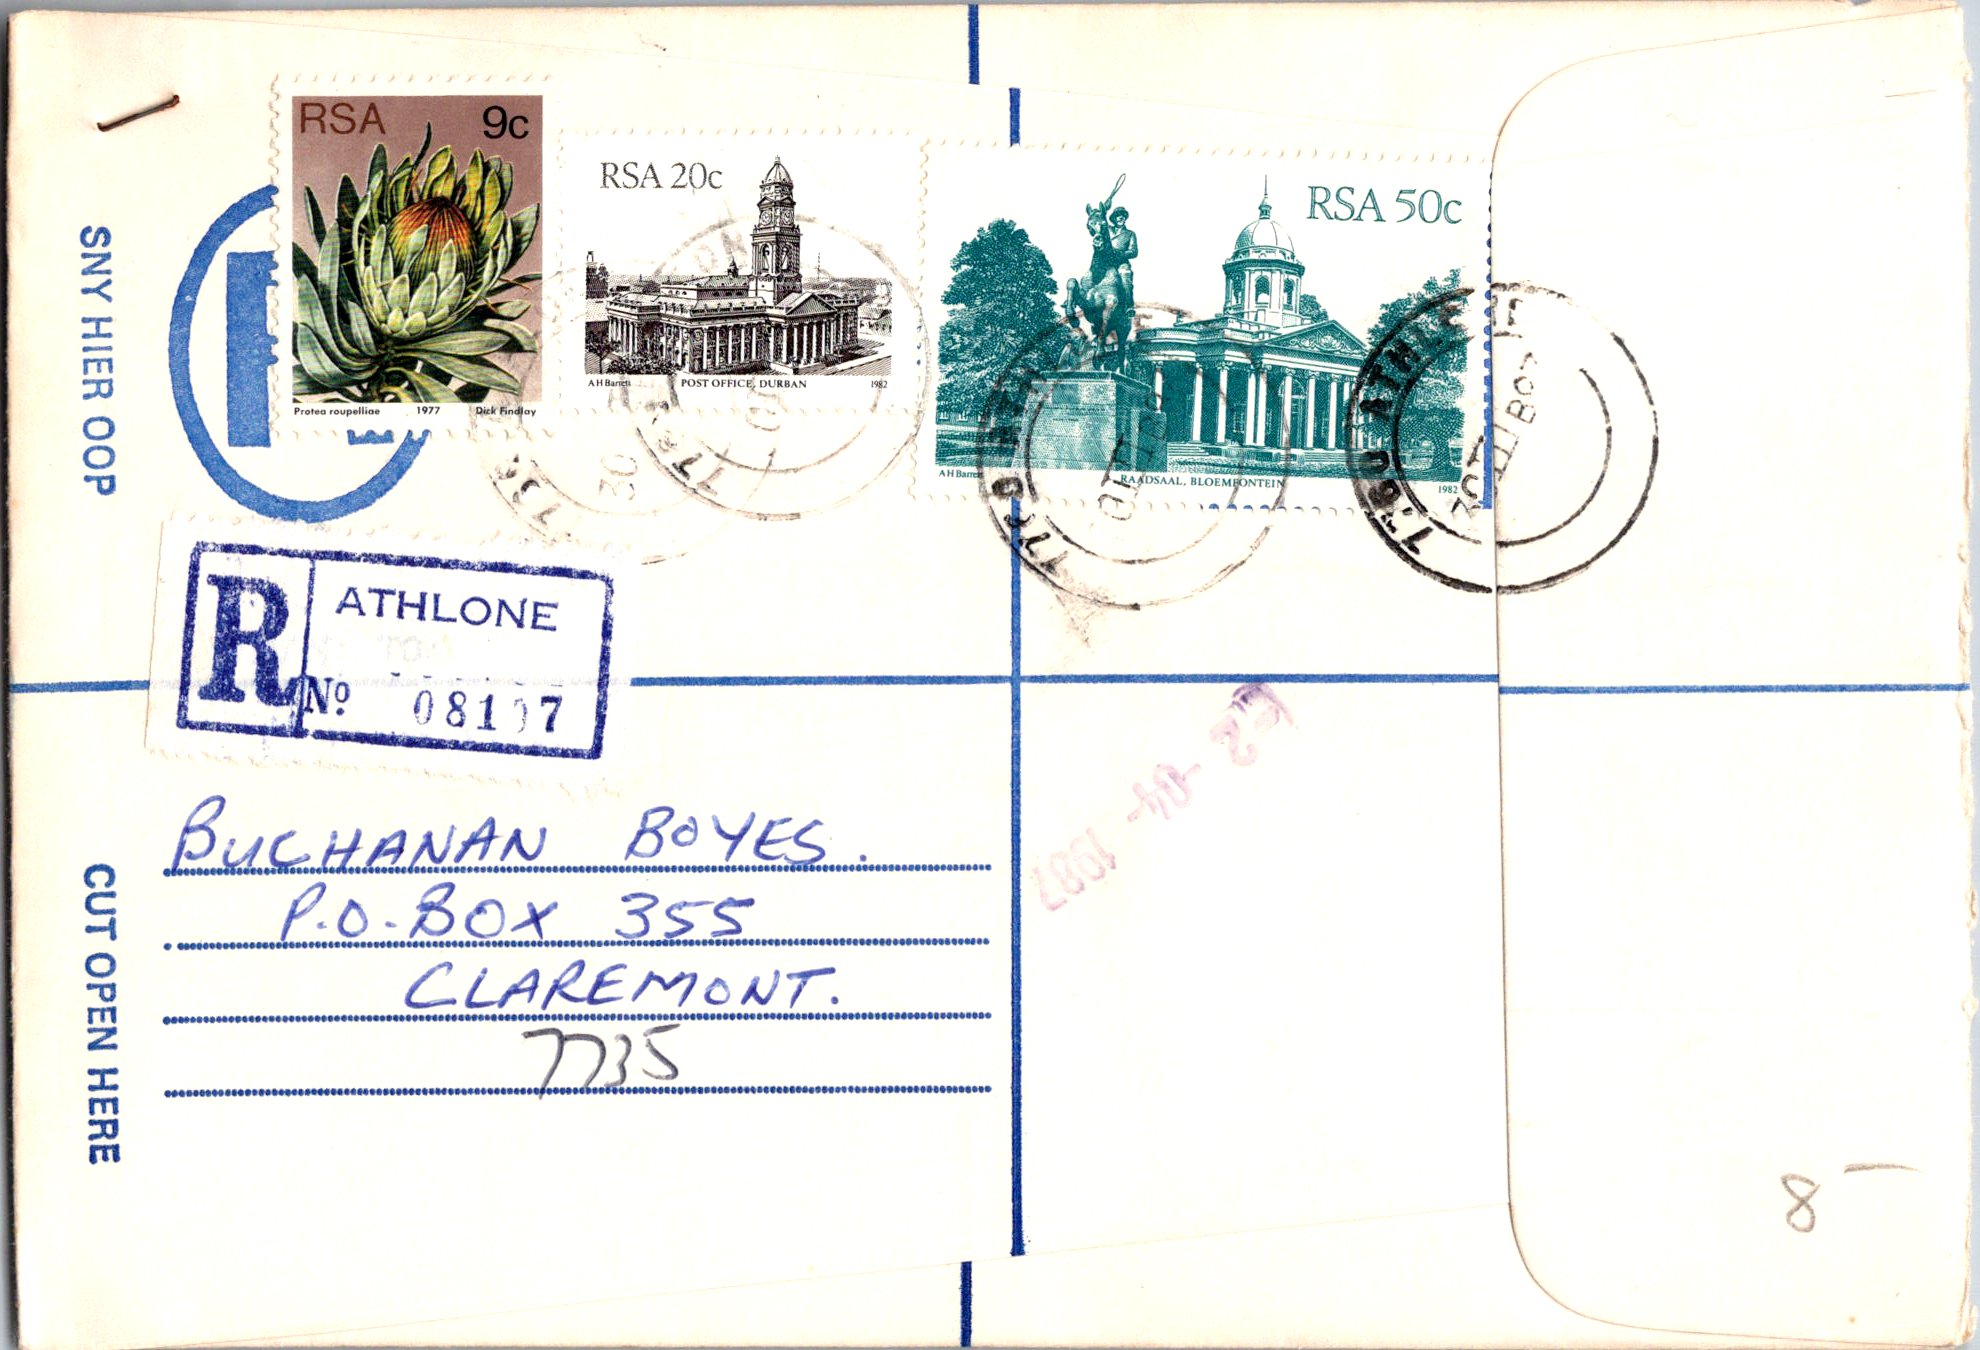 SNY HIER OOP
RSA 9c
Protea roupelliae 1977 Dick Findlay
RSA 20c
A H Barrett POST OFFICE, DURBAN 1982
RSA 50c
A H Barrett RAADSAAL, BLOEMFONTEIN 1982
ATHLONE
R ATHLONE
Nº
-04-1987
BUCHANAN BOYES.
P.O. BOX 355
CLAREMONT.
7735
CUT OPEN HERE
8 —